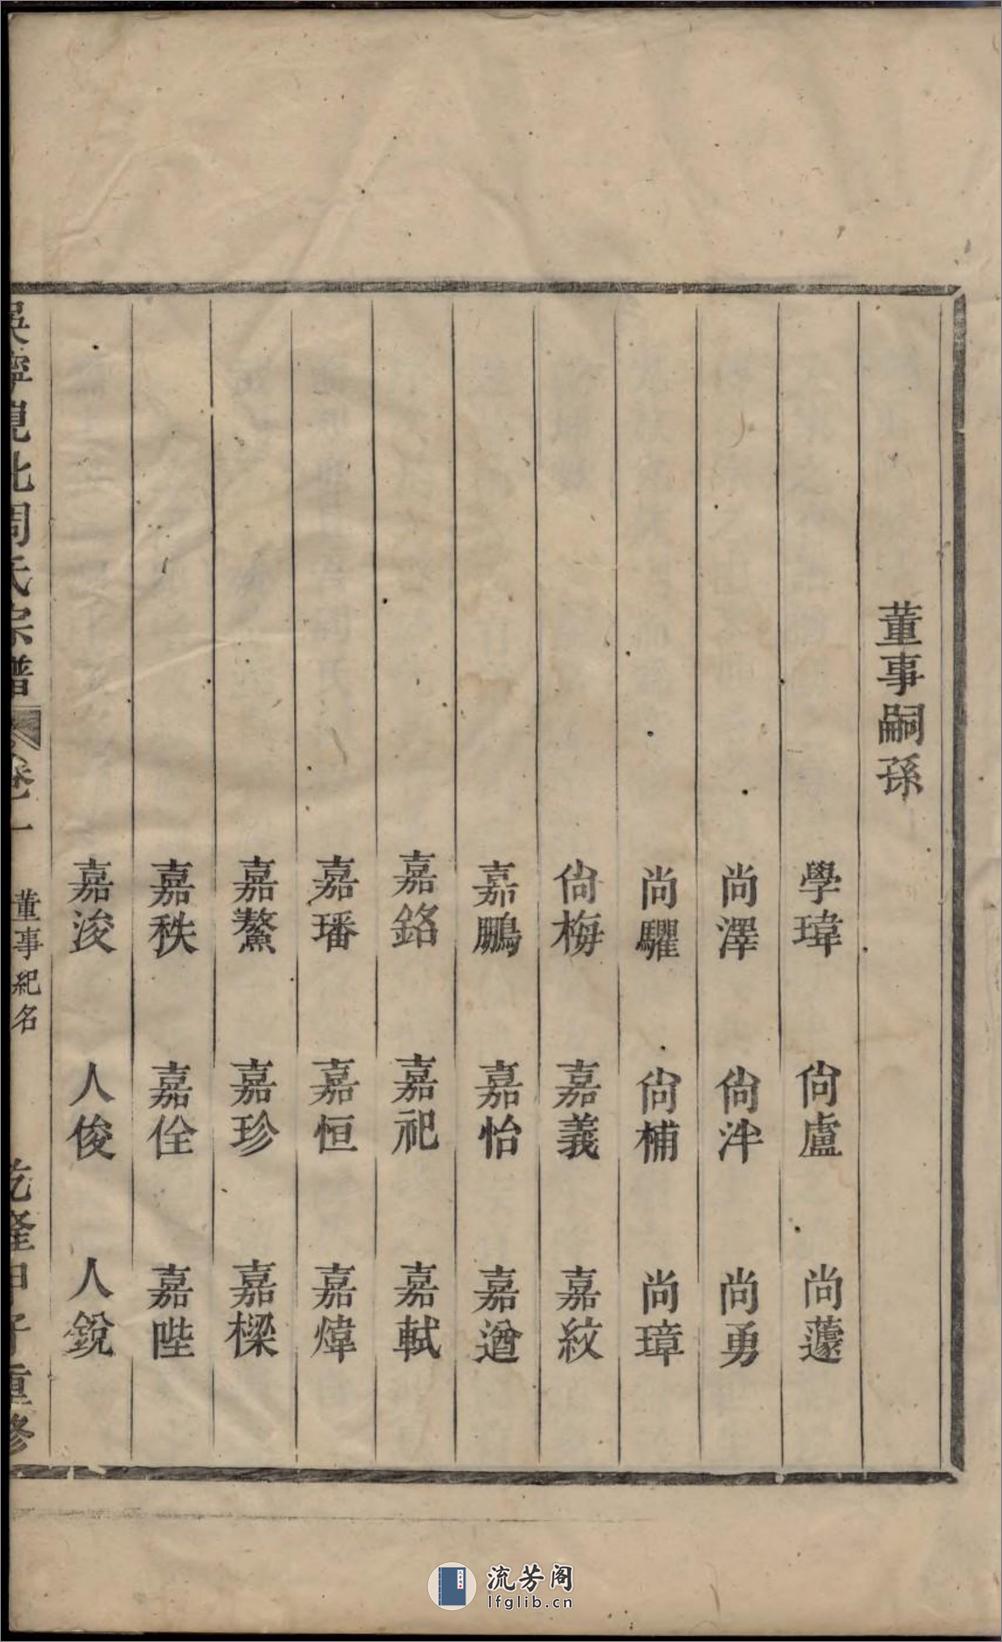 董事嗣孫
學瑋 尙盧 尚蘧
尚澤 尙泮 尚勇
尚驥 尙楠 尚璋
尙梅 嘉義 嘉紋
嘉鵬 嘉怡 嘉遒
嘉銘 嘉祀 嘉軾
嘉璠 嘉恒 嘉煒
嘉鰲 嘉珍 嘉樑
嘉秩 嘉佺 嘉陛
嘉浚 人俊 人銳
吳寧峴北周氏宗譜 卷一 董事紀名 乾隆甲子重修
流芳阁
lfglib.cn